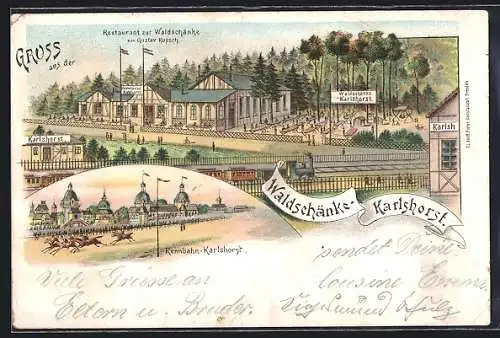 Gruss
aus der
Restaurant zur Waldschänke
von Gustav Kupsch.
Waldschänke
Karlshorst.
Karlshorst.
Karlsh
Waldschänke-
Karlshorst.
Rennbahn-Karlshorst.
sendet Deine
Viele Grüsse an
Cousine Emma
Eltern u. Bruder.
Sigismund